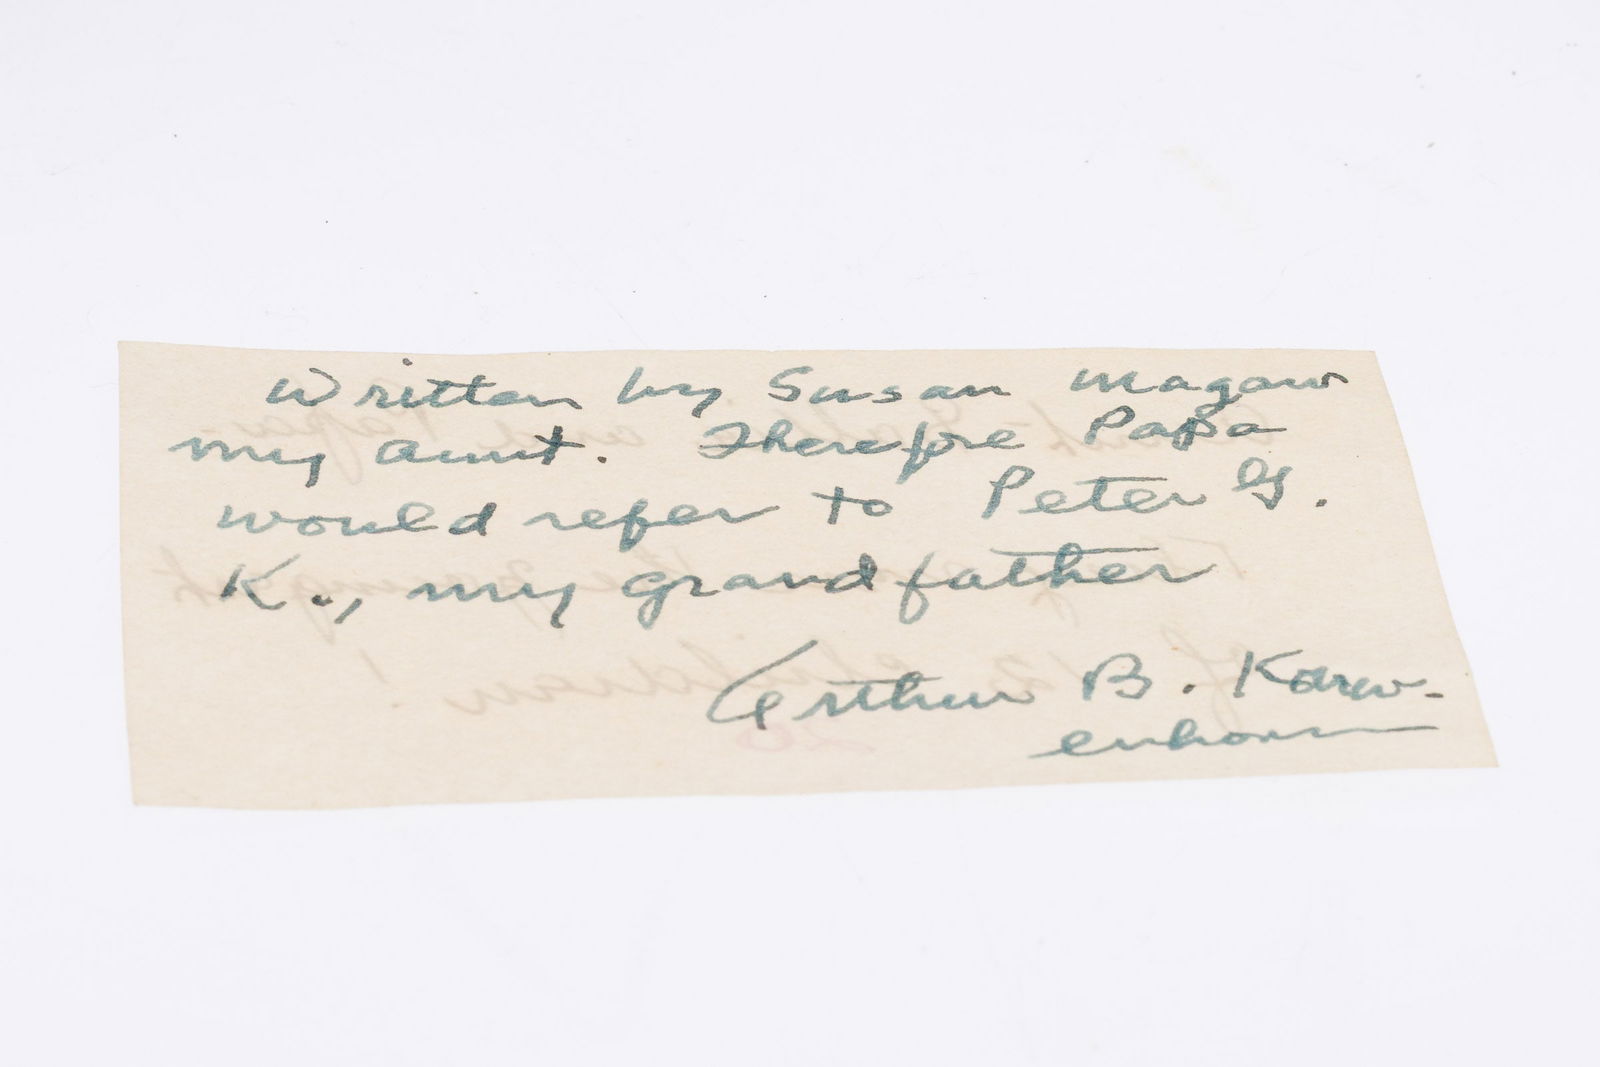 Written by Susan Magaw
my aunt. Therefore Papa
would refer to Peter G.
K., my grandfather
Arthur B. Kouw-
enhoven